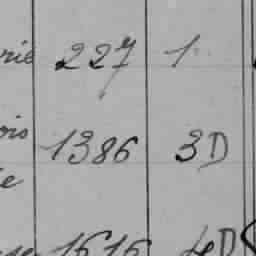 rie 227 1
ois 1386 3D
e
1616 4D